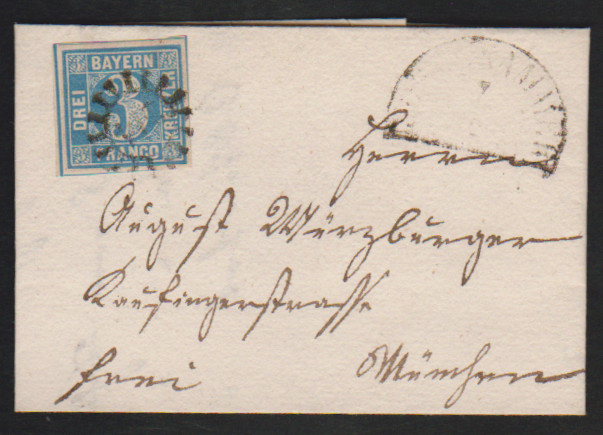 BAYERN
DREI
3
KREUZER
FRANCO
Herrn
August Würzburger
Kaufingerstrasse
frei
München